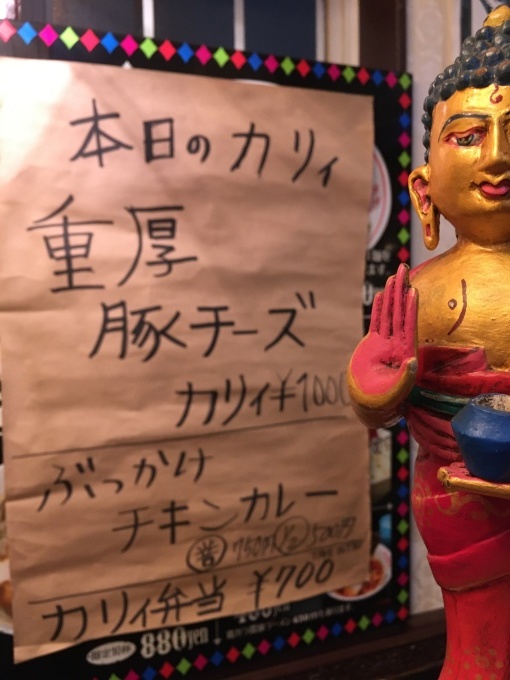 本日のカリィ
重厚
豚チーズ
カリィ¥1000
ぶっかけ
チキンカレー
750円 500円
カリィ弁当 ¥700
限定10杯 880yen